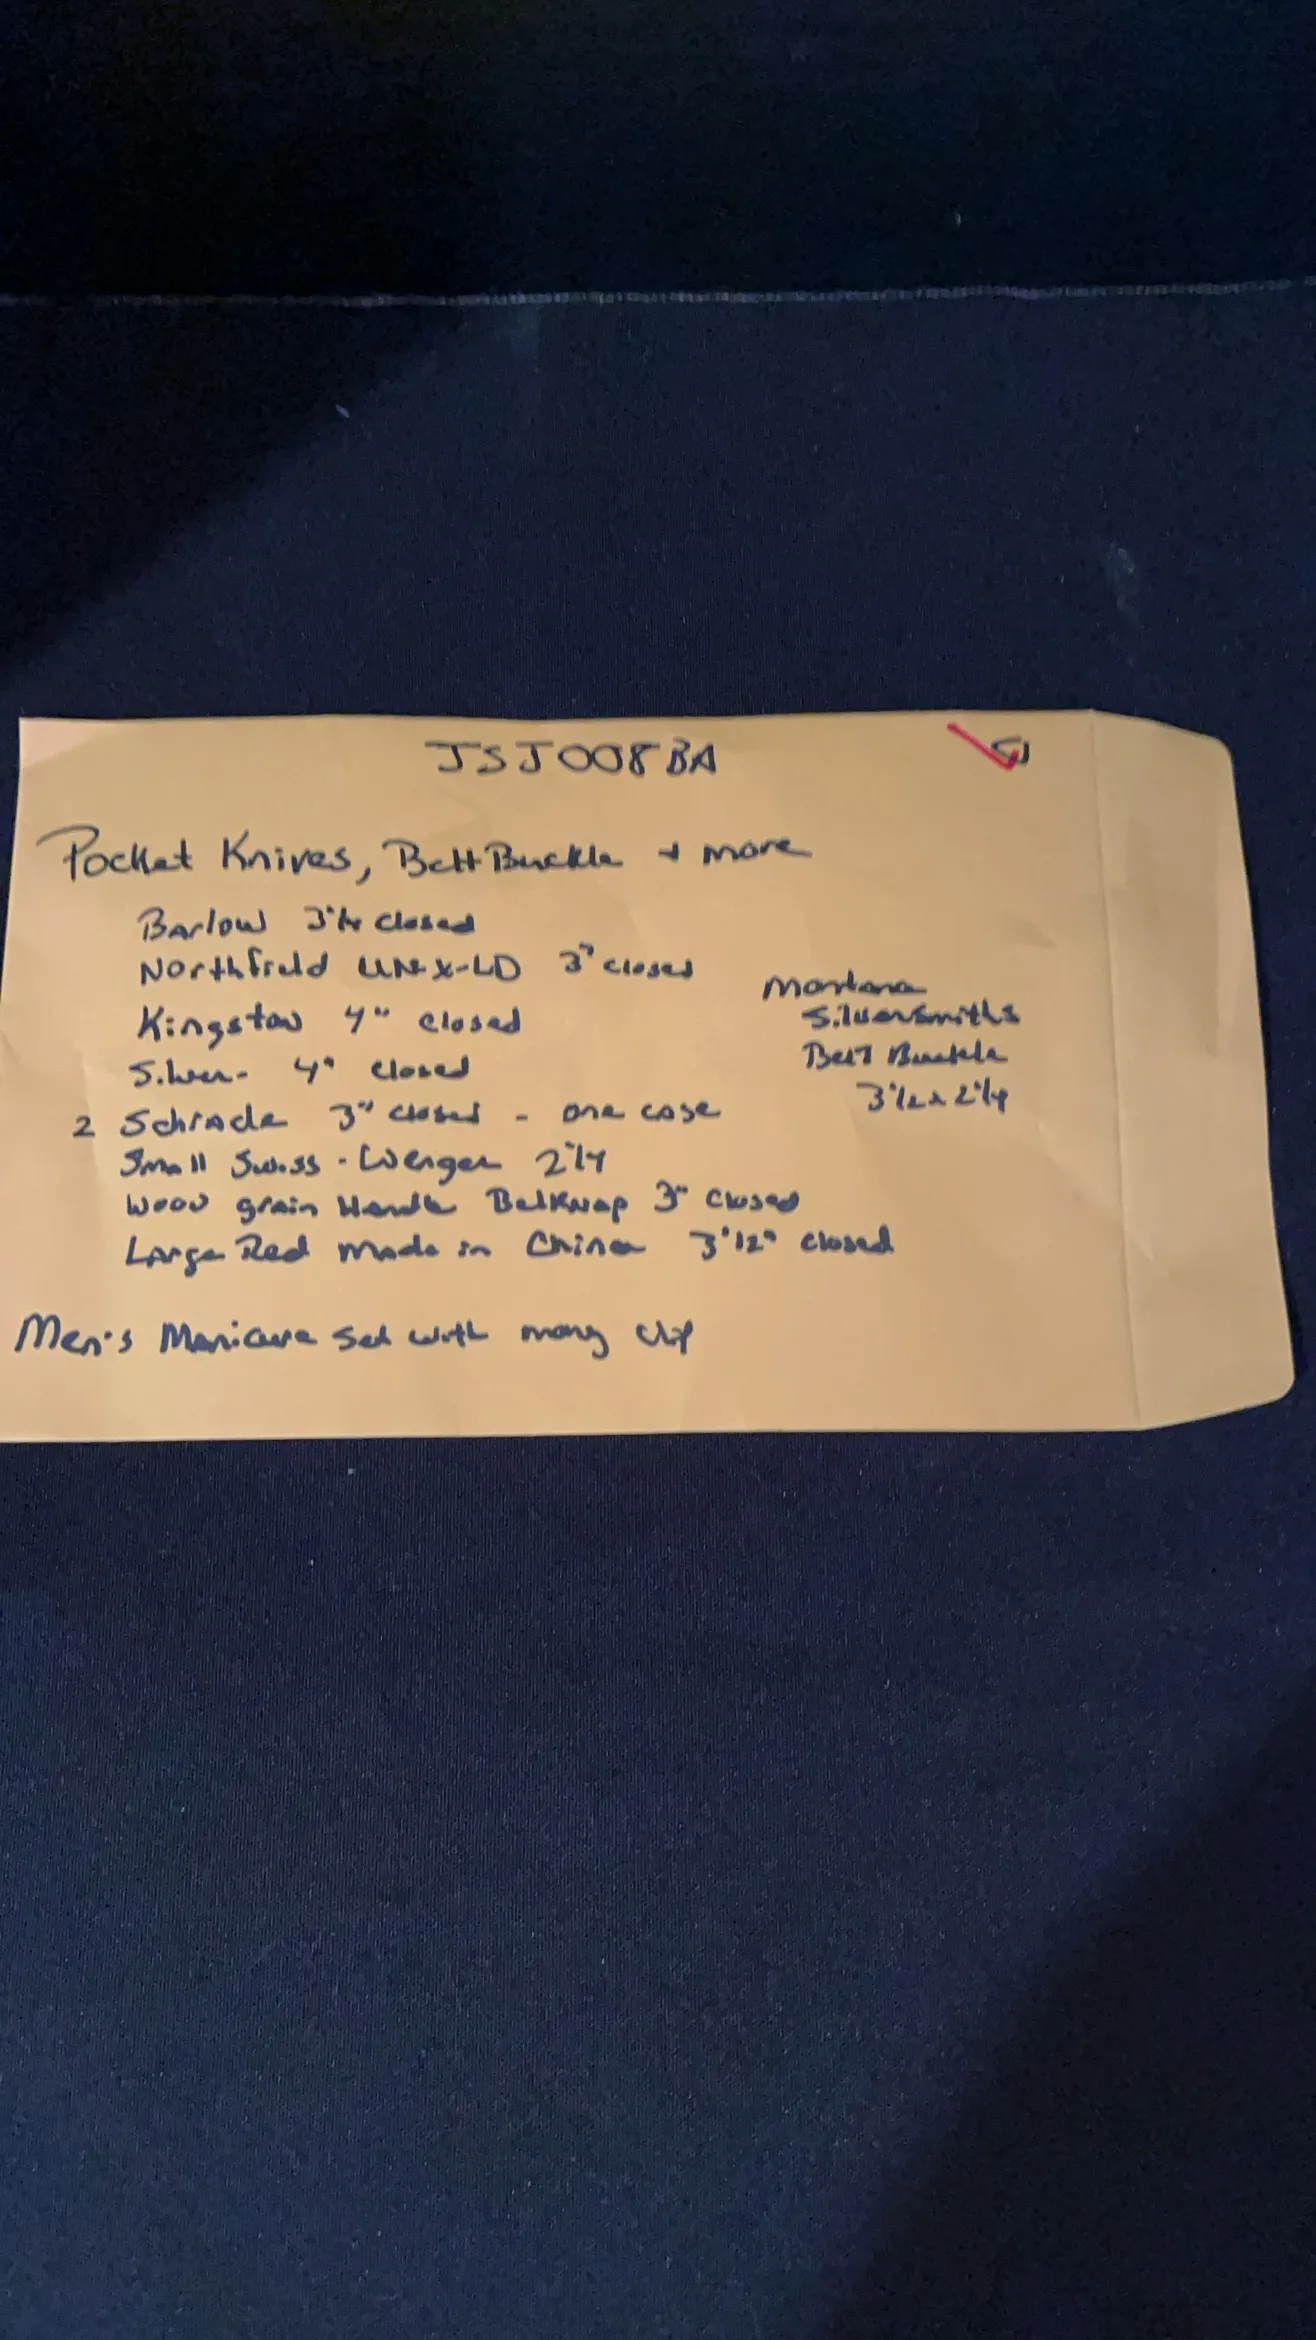 JSJ008BA
Pocket Knives, Belt Buckle + more
Barlow 3 1/4 closed
Northfield UN-X-LD 3" closed
Kingston 4" closed
Silver - 4" closed
2 Schrade 3" closed - one case
Small Swiss - Wenger 2 1/4
Wood grain Handle Belknap 3" closed
Large Red made in China 3 1/2" closed
Montana
Silversmiths
Belt Buckle
3 1/2 x 2 1/4
Men's Manicure set with mony clip